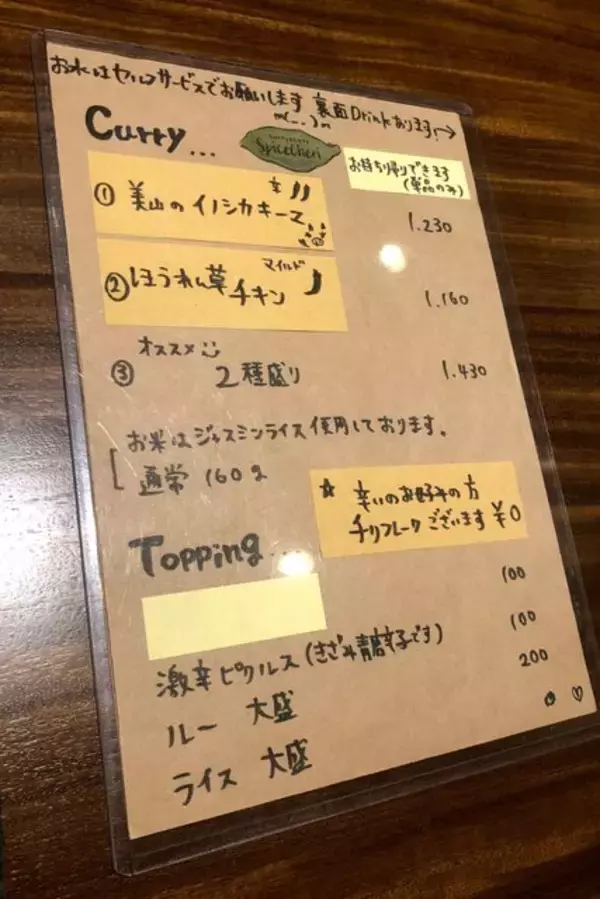 お水はセルフサービスでお願いします 裏面Drinkあります!→
m(_ _)m
Curry...
SpiceCheri
お持ち帰りできます
(単品のみ)
辛
① 美山のイノシカキーマ 1.230
マイルド
② ほうれん草チキン 1.160
オススメ
③ 2種盛り 1.430
お米はジャスミンライス使用しております。
通常 160g
☆ 辛いのお好みの方
チリフレークございます ¥0
Topping...
100
激辛ピクルス(きざみ青唐辛子です) 100
ルー 大盛 200
ライス 大盛